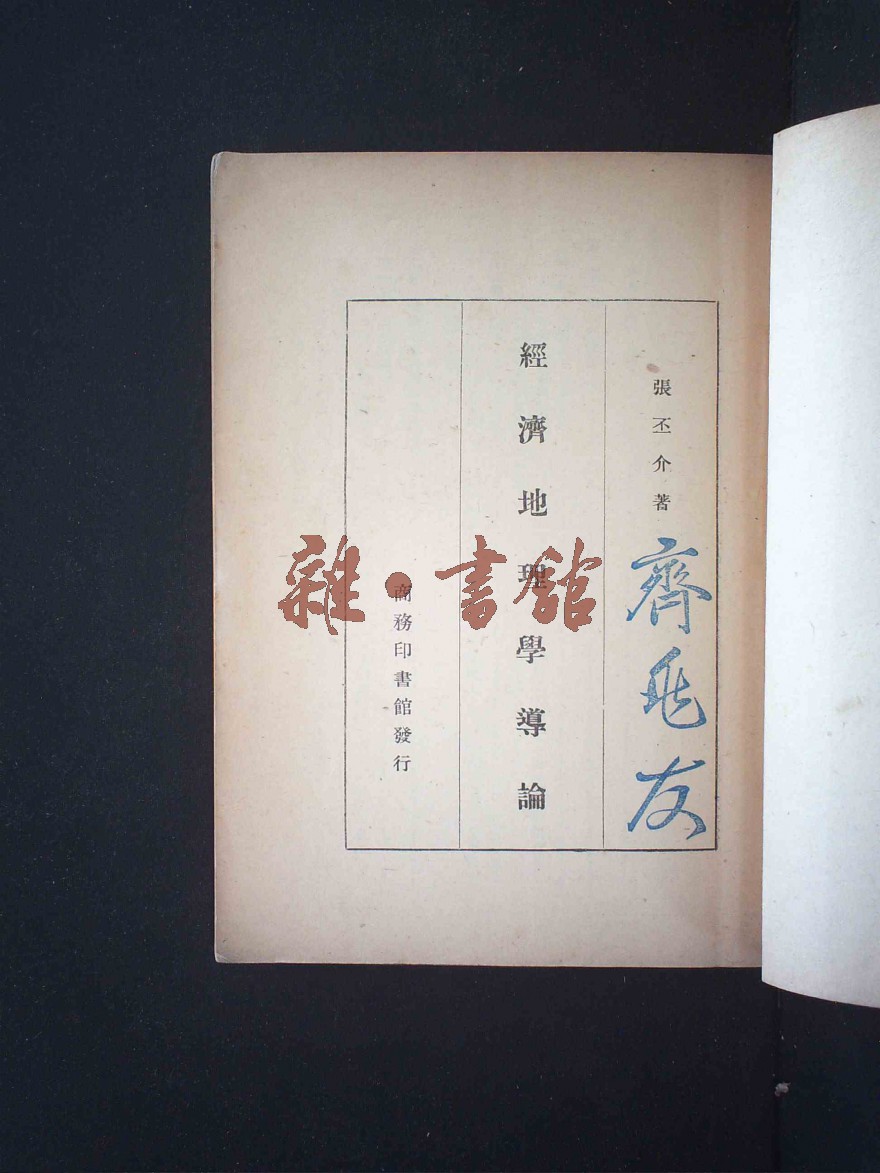 張丕介著
齊
友
經濟地理學導論
商務印書館發行
雜·書館